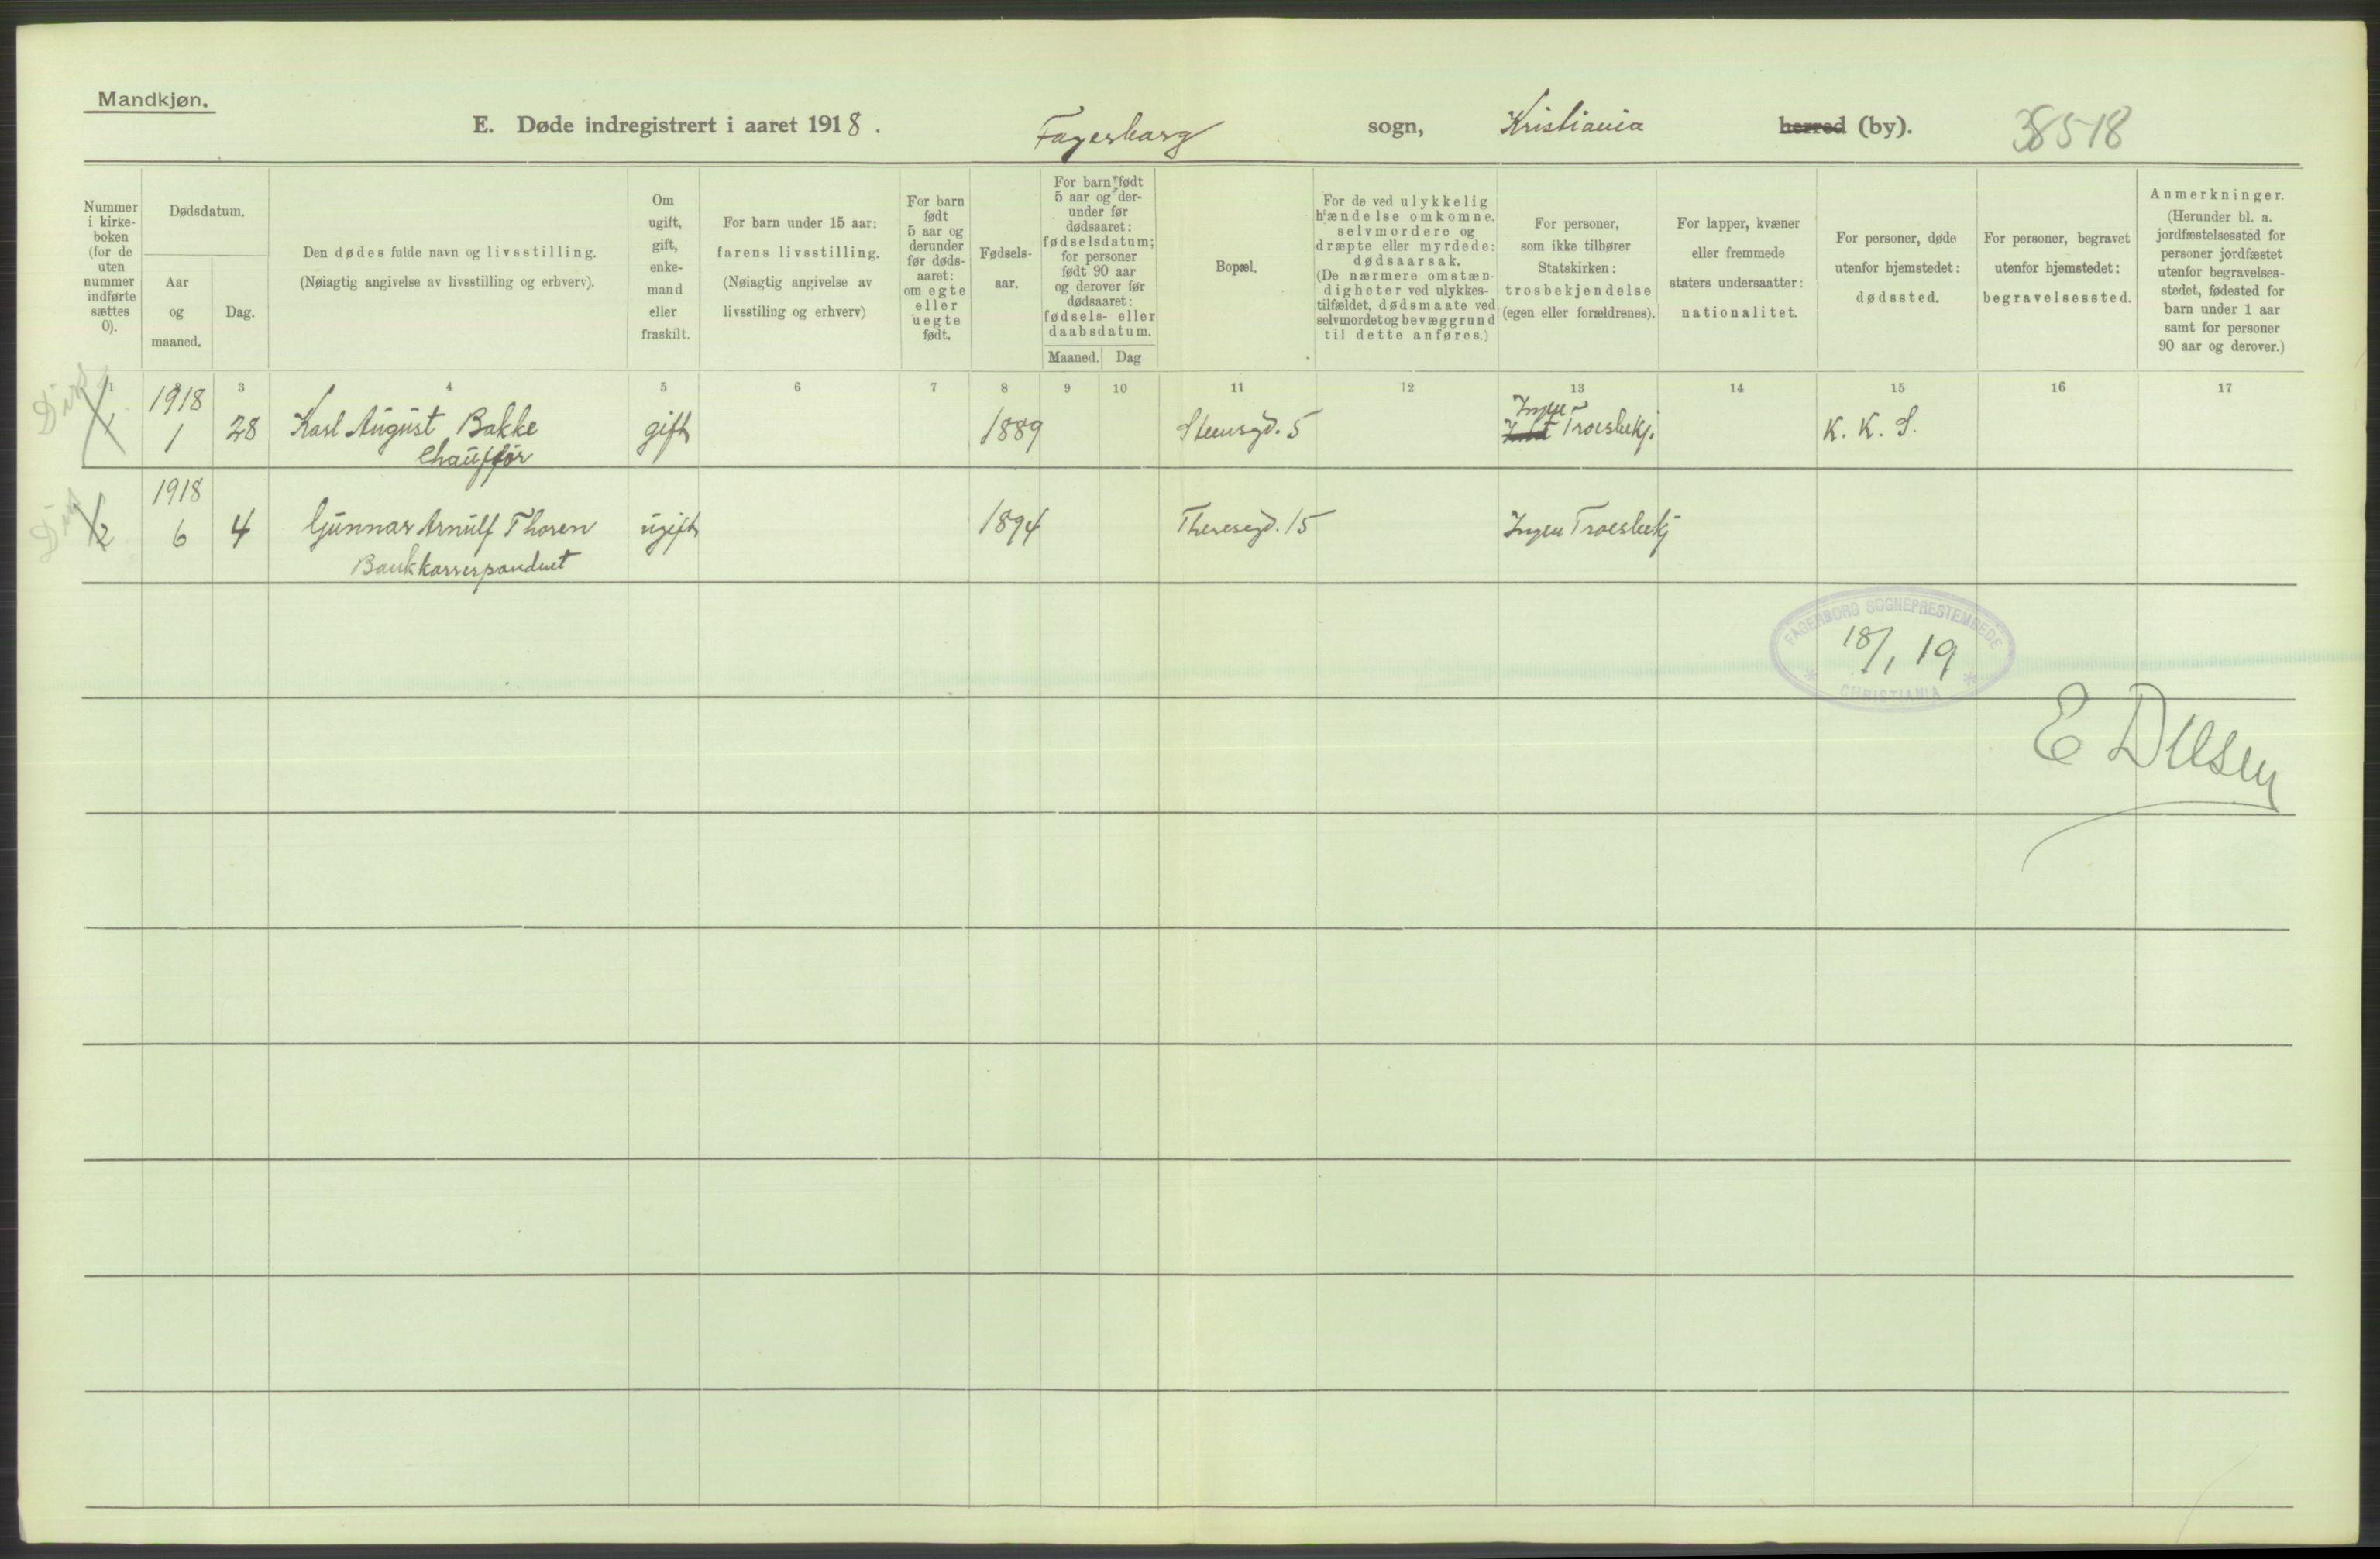 Mandkjøn.
E. Døde indregistrert i aaret 1918. Fagerborg sogn, Kristiania herred (by). 38518
Nummer i kirke-boken (for de uten nummer indførte sættes 0).
Dødsdatum.
Aar og maaned.
Dag.
Den dødes fulde navn og livsstilling.
(Nøiagtig angivelse av livsstilling og erhverv).
Om ugift, gift, enke-mand eller fraskilt.
For barn under 15 aar: farens livsstilling.
(Nøiagtig angivelse av livsstiling og erhverv)
For barn født 5 aar og derunder før døds-aaret: om egte eller uegte født.
Fødsels-aar.
For barn født 5 aar og der-under før dødsaaret: fødselsdatum; for personer født 90 aar og derover før dødsaaret: fødsels- eller daabsdatum.
Maaned. Dag
Bopæl.
For de ved ulykkelig hændelse omkomne, selvmordere og dræpte eller myrdede: dødsaarsak.
(De nærmere omstæn-digheter ved ulykkes-tilfældet, dødsmaate ved selvmordet og bevæggrund til dette anføres.)
For personer, som ikke tilhører Statskirken: trosbekjendelse (egen eller forældrenes).
For lapper, kvæner eller fremmede staters undersaatter: nationalitet.
For personer, døde utenfor hjemstedet: dødssted.
For personer, begravet utenfor hjemstedet: begravelsessted.
Anmerkninger.
(Herunder bl. a. jordfæstelsessted for personer jordfæstet utenfor begravelses-stedet, fødested for barn under 1 aar samt for personer 90 aar og derover.)
1 3 4 5 6 7 8 9 10 11 12 13 14 15 16 17
1918 Ingen
1 1 28 Karl August Bakke gift 1889 Steensgd. 5 Trosbekj. K. K. S.
Chauffør
1918
2 6 4 Gunnar Arnulf Thoren ugift 1894 Theresegd. 15 Ingen Trosbekj
Bankkorrespondent
FAGERBORG SOGNEPRESTEMBEDE
18/1 19
CHRISTIANIA